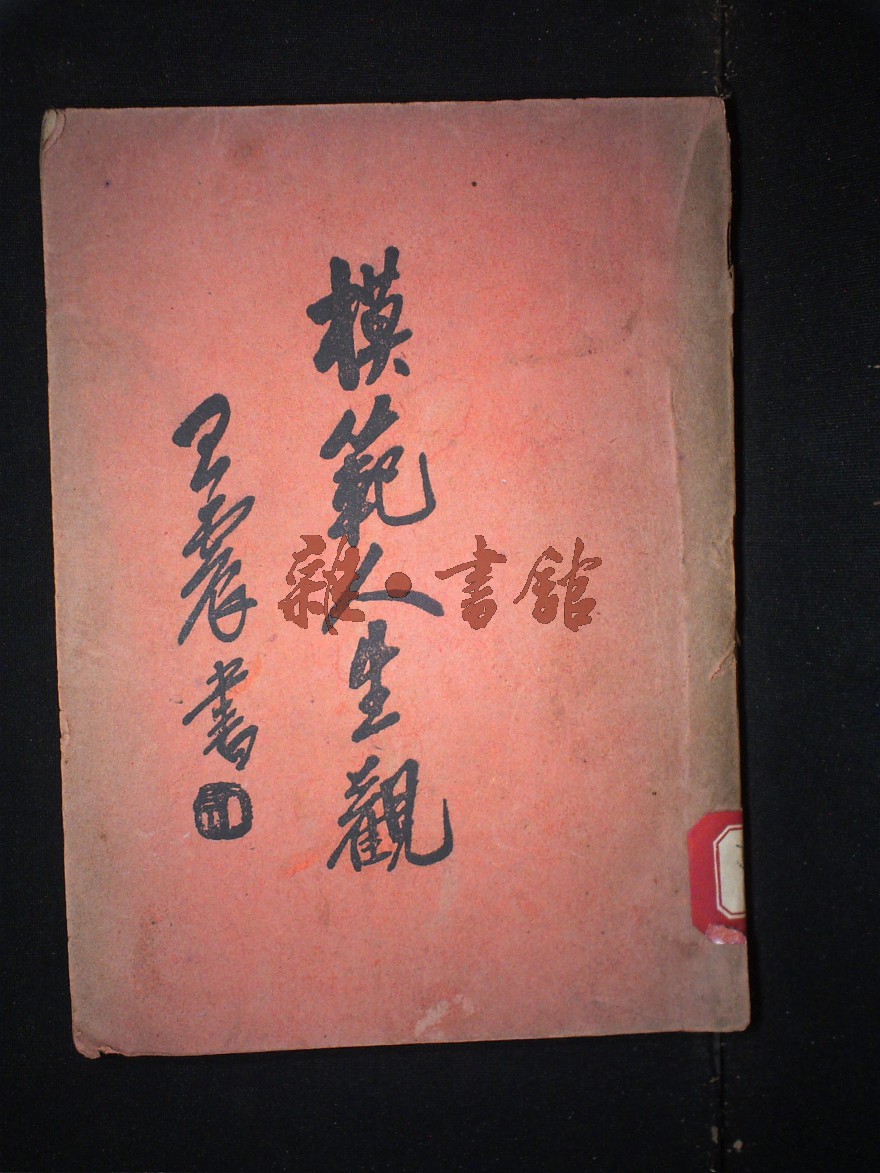 模範人生觀
王震書
雜·書館